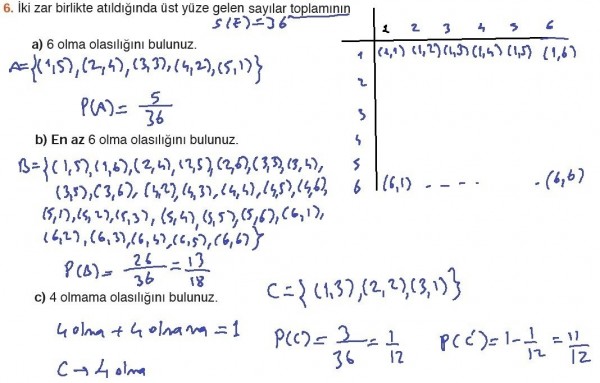 6. İki zar birlikte atıldığında üst yüze gelen sayılar toplamının
S(E)=36
a) 6 olma olasılığını bulunuz.
A={(1,5),(2,4),(3,3),(4,2),(5,1)}
P(A)= 5/36
1 2 3 4 5 6
1 (1,1) (1,2) (1,3) (1,4) (1,5) (1,6)
2
3
4
5
6 (6,1) - - - - . (6,6)
b) En az 6 olma olasılığını bulunuz.
B={(1,5),(1,6),(2,4),(2,5),(2,6),(3,3),(3,4),
(3,5),(3,6),(4,2),(4,3),(4,4),(4,5),(4,6),
(5,1),(5,2),(5,3),(5,4),(5,5),(5,6),(6,1),
(6,2),(6,3),(6,4),(6,5),(6,6)}
P(B)= 26/36 = 13/18
c) 4 olmama olasılığını bulunuz.
4 olma + 4 olmama = 1
C → 4 olma
C={(1,3),(2,2),(3,1)}
P(C)= 3/36 = 1/12 P(C')=1-1/12=11/12